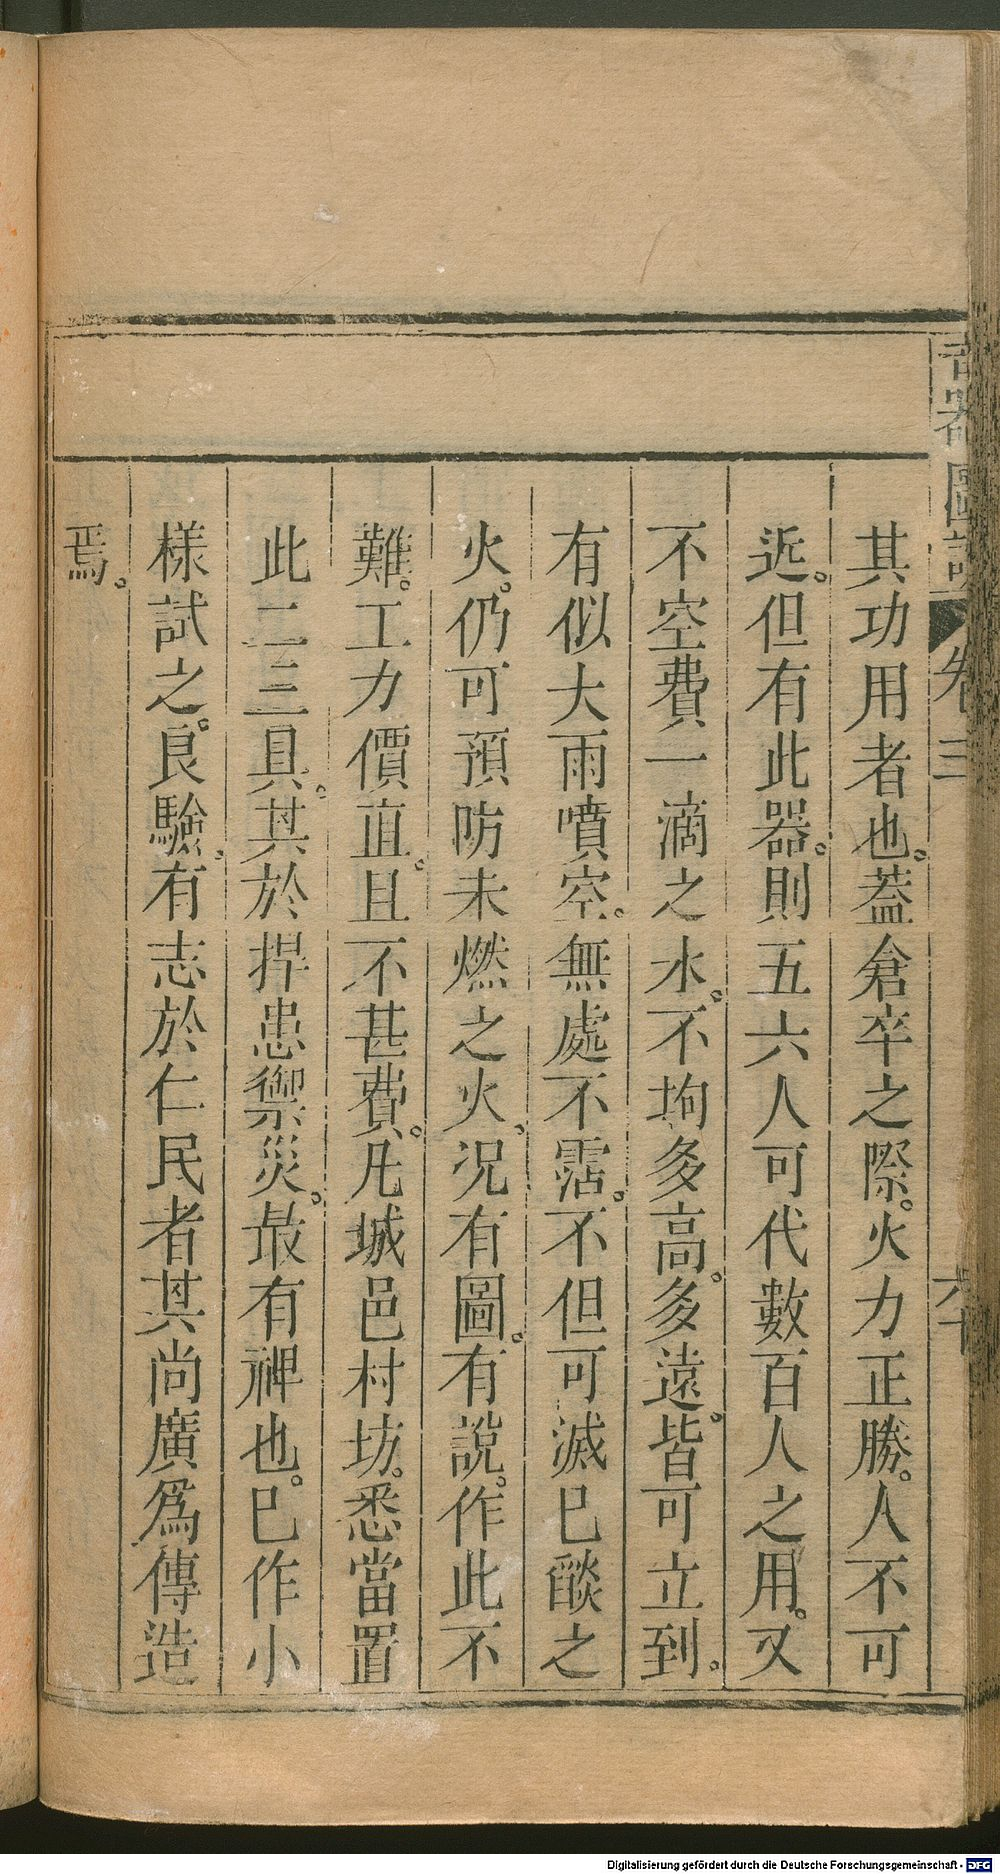 其功用者也。蓋倉卒之際。火力正勝。人不可
近。但有此器。則五六人可代數百人之用。又
不空費一滴之水。不拘多高。多遠。皆可立到。
有似大雨噴空。無處不霑。不但可滅已燄之
火。仍可預防未燃之火。況有圖。有說。作此不
難。工力價直。且不甚費。凡城邑村坊。悉當置
此二三具。其於捍患禦災。最有裨也。已作小
樣試之。良驗。有志於仁民者其尚廣爲傳造
焉。
器圖說 卷三
Digitalisierung gefördert durch die Deutsche Forschungsgemeinschaft - DFG